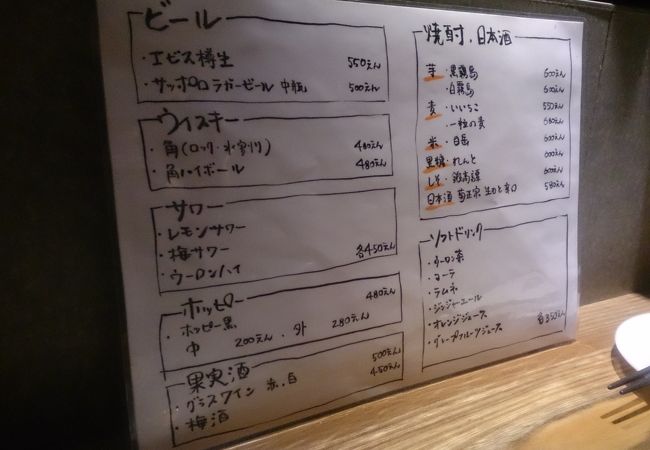 ビール
・エビス樽生 550えん
・サッポロラガービール 中瓶 500えん
ウィスキー
・角(ロック・水割り) 480えん
・角ハイボール 480えん
サワー
・レモンサワー
・梅サワー 各450えん
・ウーロンハイ
ホッピー 480えん
・ホッピー黒
中 200えん ・外 280えん
果実酒 500えん
・グラスワイン 赤、白 450えん
・梅酒
焼酎、日本酒
芋・黒霧島 600えん
・白霧島 600えん
麦・いいちこ 550えん
・一粒の麦 680えん
米・白岳 600えん
黒糖・れんと 600えん
しそ・鍛高譚 600えん
日本酒 菊正宗 生もと辛口 580えん
ソフトドリンク
・ウーロン茶
・コーラ
・ラムネ
・ジンジャーエール
・オレンジジュース 各350えん
・グレープフルーツジュース